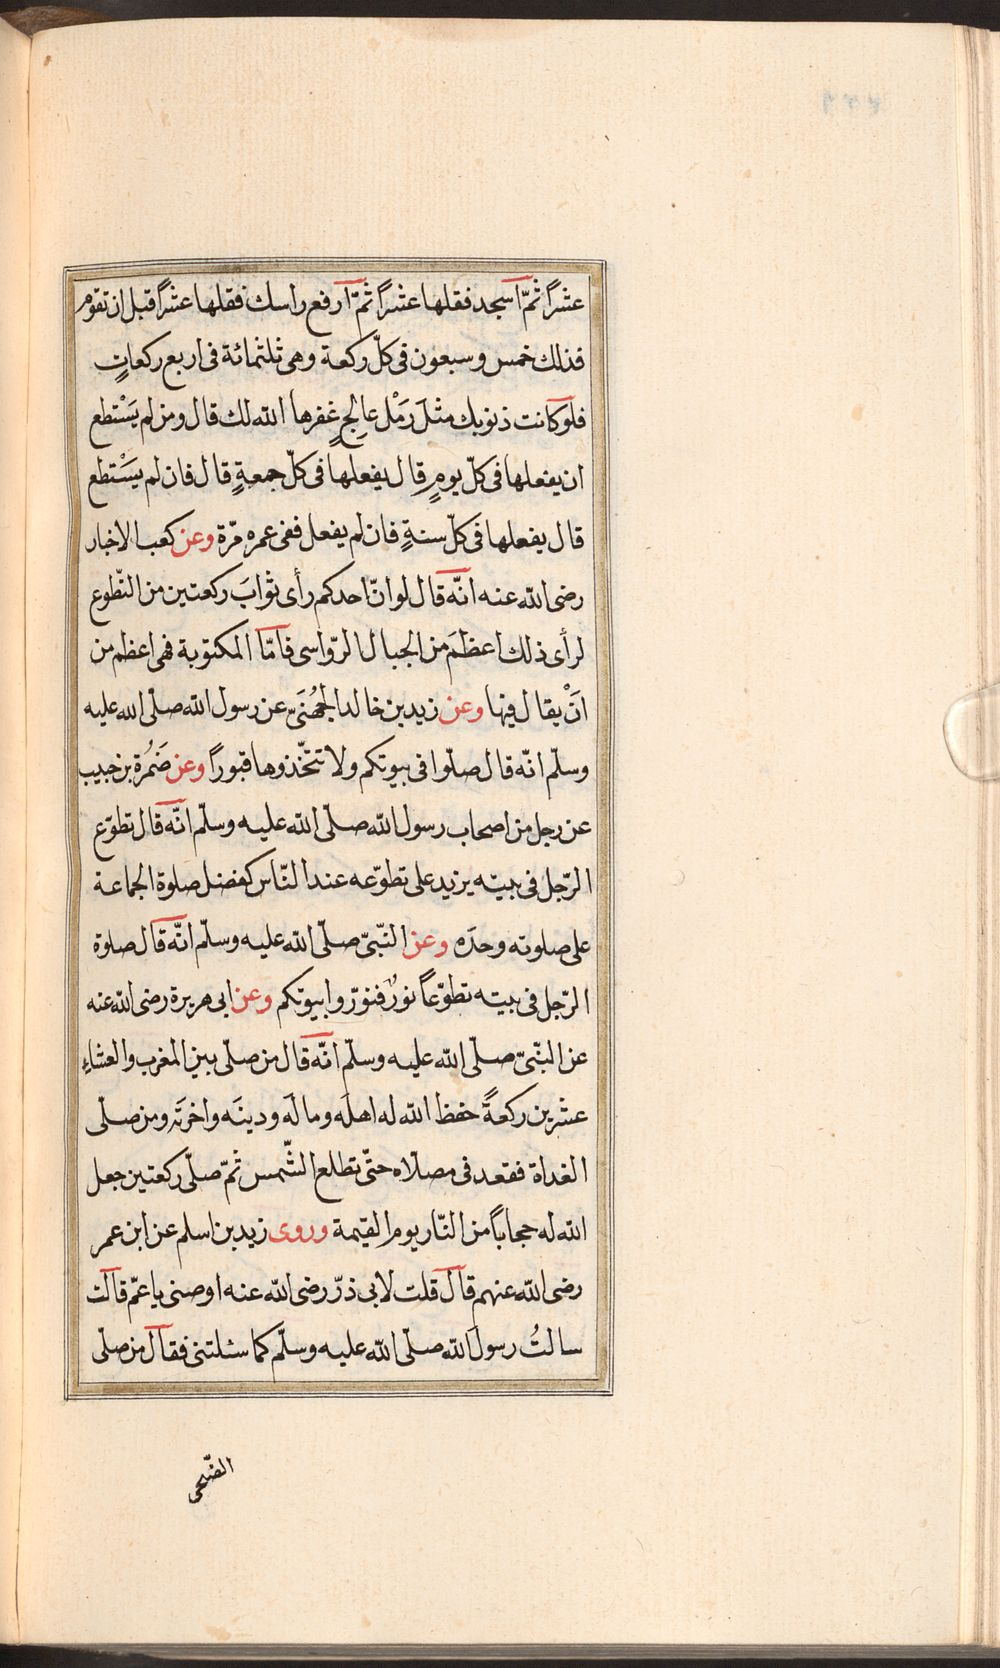 عشرًا ثمّ اسجد فقلها عشرًا ثمّ ارفع راسك فقلها عشرًا قبل ان تقوم
فذلك خمس وسبعون فى كلّ ركعة وهى ثلثمائة فى اربع ركعاتٍ
فلو كانت ذنوبك مثلَ رَمْل عالِجٍ غفرها الله لك قال ومن لم يَسْتطع
ان يفعلها فى كلّ يومٍ قال يفعلها فى كلّ جمعةٍ قال فان لم يَسْتطع
قال يفعلها فى كلّ سنةٍ فان لم يفعل ففى عمره مرّة وعن كعب الاخبار
رضى الله عنه انّه قال لو انّ احدكم رأى ثوابَ ركعتين من التّطوع
لرأى ذلك اعظمَ من الجبال الرّواسى فامّا المكتوبة فهى اعظم من
انْ يقال فيها وعن زيد بن خالد الجُهَنىّ عن رسول الله صلّى الله عليه
وسلّم انّه قال صلّوا فى بيوتكم ولا تتّخذوها قبورًا وعن ضَمُرة بن حبيب
عن رجل من اصحاب رسول الله صلّى الله عليه وسلّم انّه قال تطوّع
الرّجل فى بيته يزيد على تطوّعه عند النّاس كفضل صلوة الجماعة
على صلوته وحدَه وعن النّبىّ صلّى الله عليه وسلّم انّه قال صلوة
الرّجل فى بيته تطوّعًا نورٌ فنوّروا بيوتكم وعن ابى هريرة رضى الله عنه
عن النّبىّ صلّى الله عليه وسلّم انّه قال من صلّى بين المغرب والعشاءِ
عشرين ركعةً حفظ الله له اهلَه ومالَه ودينَه واخرتَه ومن صلّى
الغداة فقعد فى مصلّاه حتّى تطلع الشّمس ثمّ صلّى ركعتين جعل
الله له حجابًا من النّار يوم القيمة وروى زيد بن اسلم عن ابن عمر
رضى الله عنهم قال قلت لابى ذرّ رضى الله عنه اوصنى يا عمّ قالت
سالتُ رسولَ الله صلّى الله عليه وسلّم كما سئلتنى فقال من صلّى
الضّحى